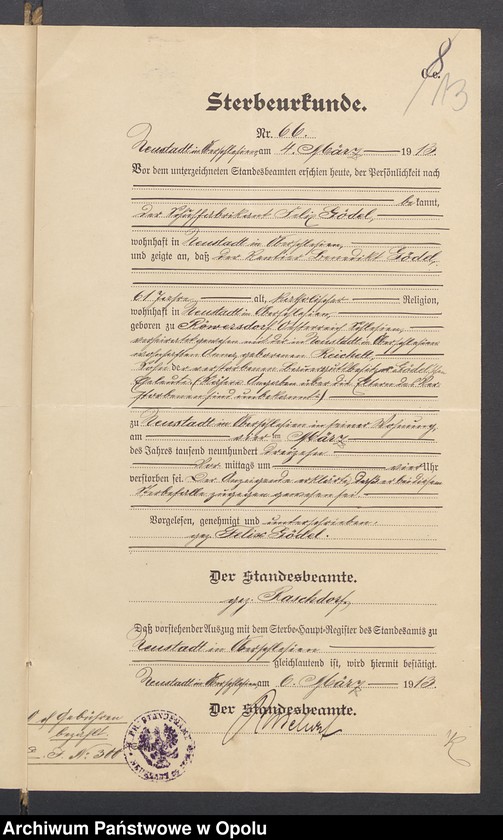 8
C c.
113
Sterbeurkunde.
Nr. 66.
Neustadt in Oberschlesien, am 4. März 1913.
Vor dem unterzeichneten Standesbeamten erschien heute, der Persönlichkeit nach
bekannt,
der Schuhfabrikant Felix Gödel,
wohnhaft in Neustadt in Oberschlesien,
und zeigte an, daß der Rentier Benedikt Gödel,
61 Jahre alt, katholischer Religion,
wohnhaft in Neustadt in Oberschlesien,
geboren zu Röwersdorf Österreich Schlesien,
verheiratet gewesen mit der in Neustadt in Oberschlesien
wohnhaften Anna, geborenen Reichelt,
Sohn der verstorbenen Bauergutsbesitzer Gödel'schen
Eheleute (Nähere Angaben über die Eltern des Ver-
storbenen sind unbekannt)
zu Neustadt in Oberschlesien in seiner Wohnung,
am vierten März
des Jahres tausend neunhundert dreizehn
Vor mittags um vier Uhr
verstorben sei. Der Anzeigende erklärte, daß er bei diesem
Sterbefalle zugegen gewesen sei.
Vorgelesen, genehmigt und unterschrieben.
gez. Felix Gödel.
Der Standesbeamte.
gez. Raschdorf,
Daß vorstehender Auszug mit dem Sterbe-Haupt-Register des Standesamts zu
Neustadt in Oberschlesien
gleichlautend ist, wird hiermit bestätigt.
Neustadt in Oberschlesien, am 6. März 1913.
Der Standesbeamte.
Gebühren
bezahlt
J. Nr. 311
STANDESAMT
Archiwum Państwowe w Opolu